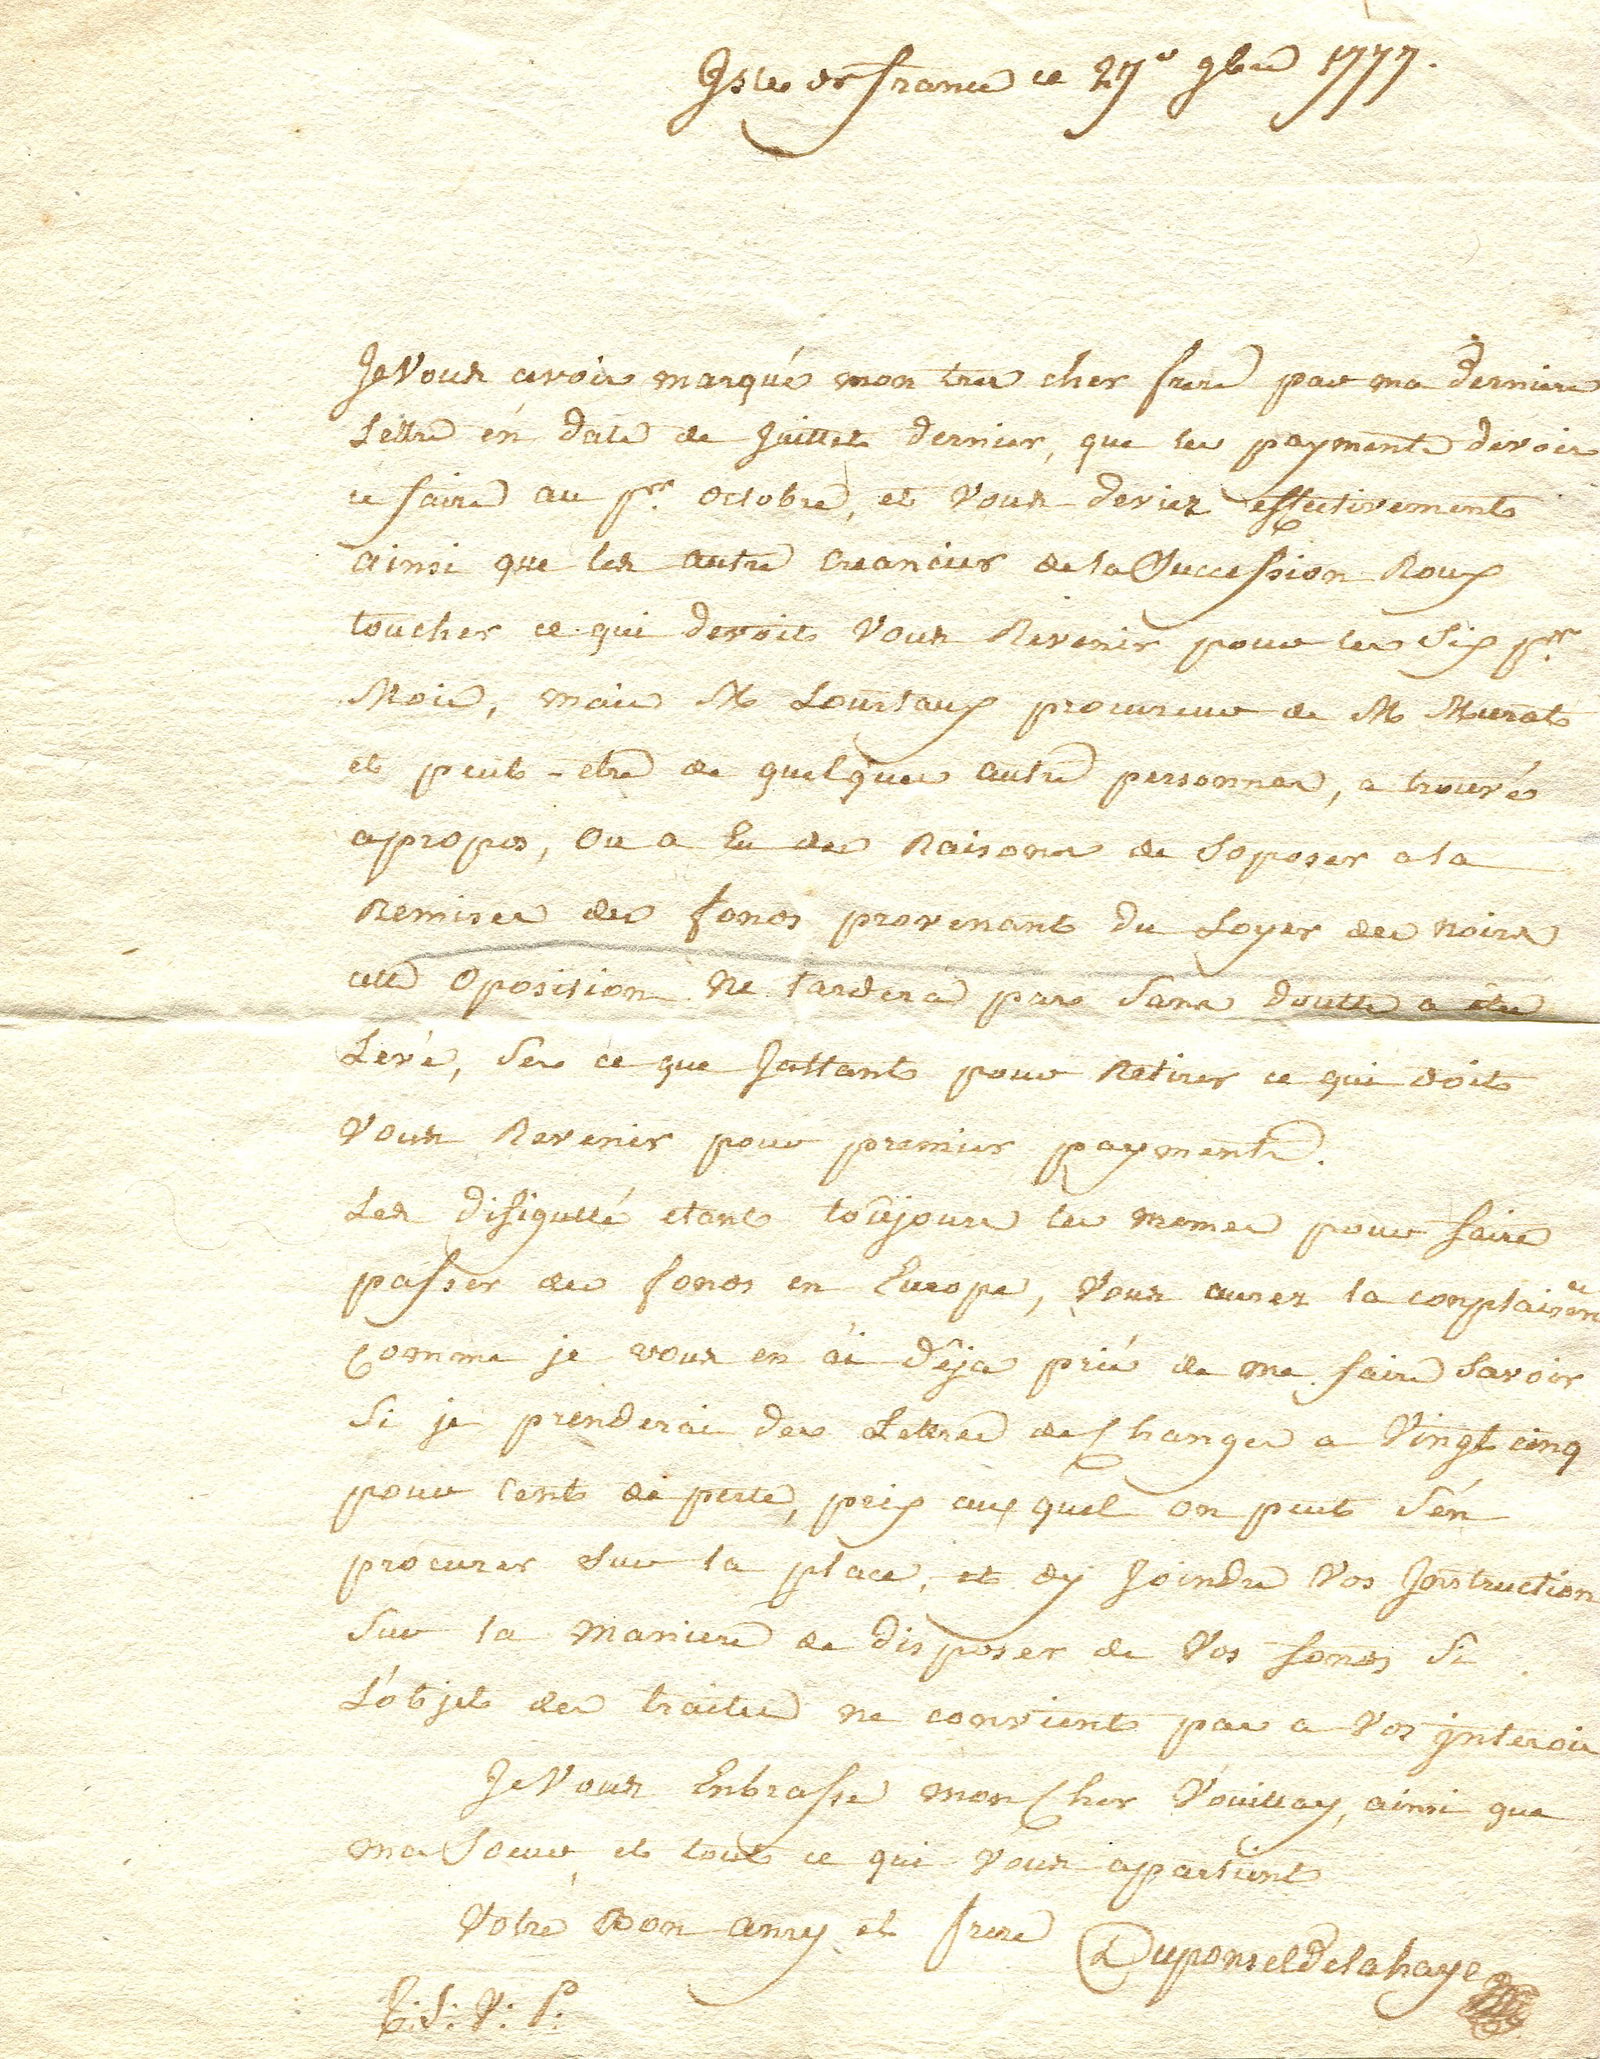 Isle de france ce 27e 9bre 1777.
Je Vous avois marqué mon tres cher frere par ma derniere
Lettre én date de Juillet dernier, que les payments devois
ce faire au pr. octobre, et Vous deviez effectivement
ainsi que les autre creancier de la Succession Roux
toucher ce qui devoit Vous Revenir pour les Six prs.
Mois, mais M Lourtaux procureur de M Murat
et peut-etre de quelques autre personnes, a trouvé
apropos, Ou a Eu des Raisons de Soposer a la
Remise des fonds provenant du Loyer des noirs
cette Oposition ne tardera pas Sans doutte a être
Levé, Ses ce que Jattant pour Retirer ce qui doit
Vous Revenir pour premier payment.
Les difiqulté etant toujours les memes pour faire
passer des fonds en Europe, Vous aurez la complaisence
Comme je vous en ái déja prié de me faire Savoir
Si je prenderai des Lettres de Change a Vingt cinq
pour Cent de perte, prix aux quel on peut S'én
procurer Sur la place, et dy Joindre Vos Instruction
Sur la maniere de disposer de Vos fonds Si
L'objet des traites ne convient pas a Vos jnterois
Je Vous Enbrasse mon Cher Vouillay, ainsi que
ma Soeur, et tout ce qui Vous apartient
Votre Bon amy et frere Duponsel Delahaye
T: S: V: P: